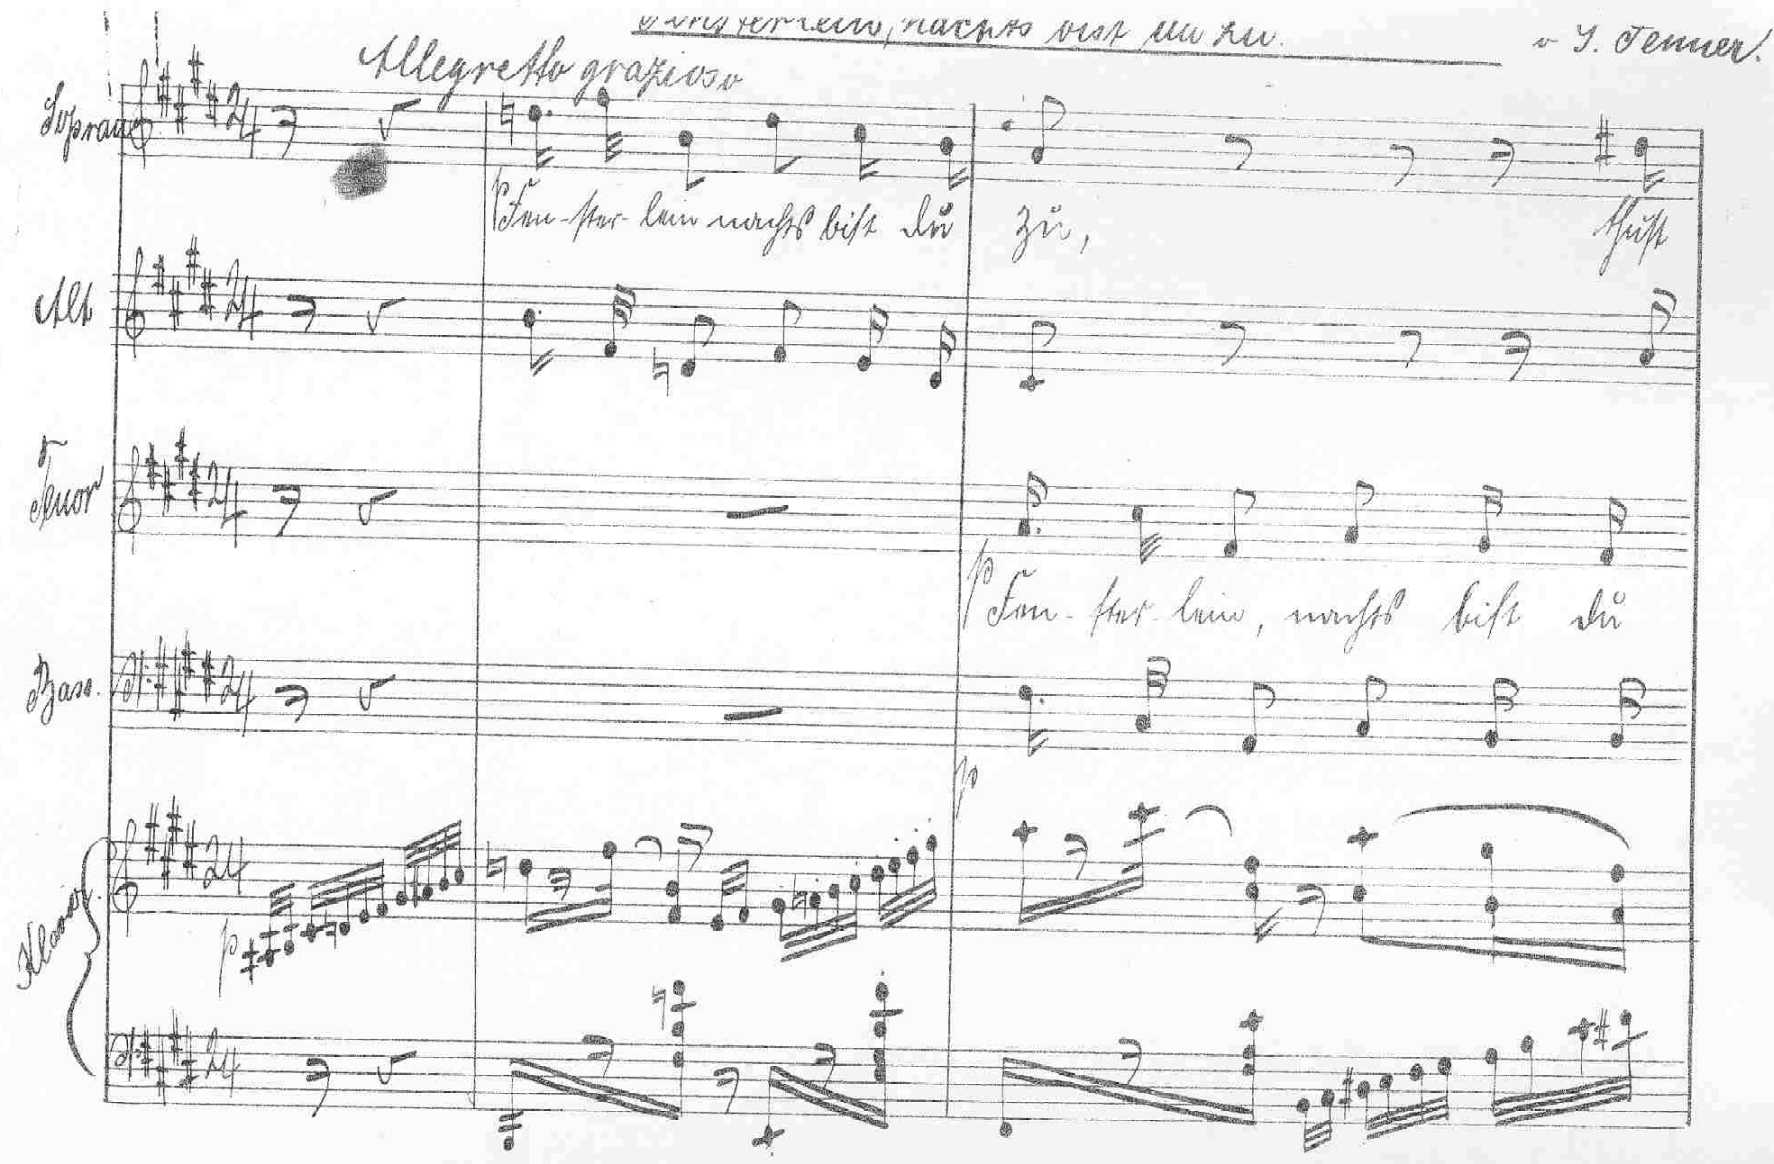 Fensterlein, nachts bist du zu. v. J. Jenner.
Allegretto grazioso
Sopran
p Fen-ster-lein nachts bist du zu, thust
Alt
Tenor
p Fen-ster-lein, nachts bist du
Bass.
p
Klavier.
p